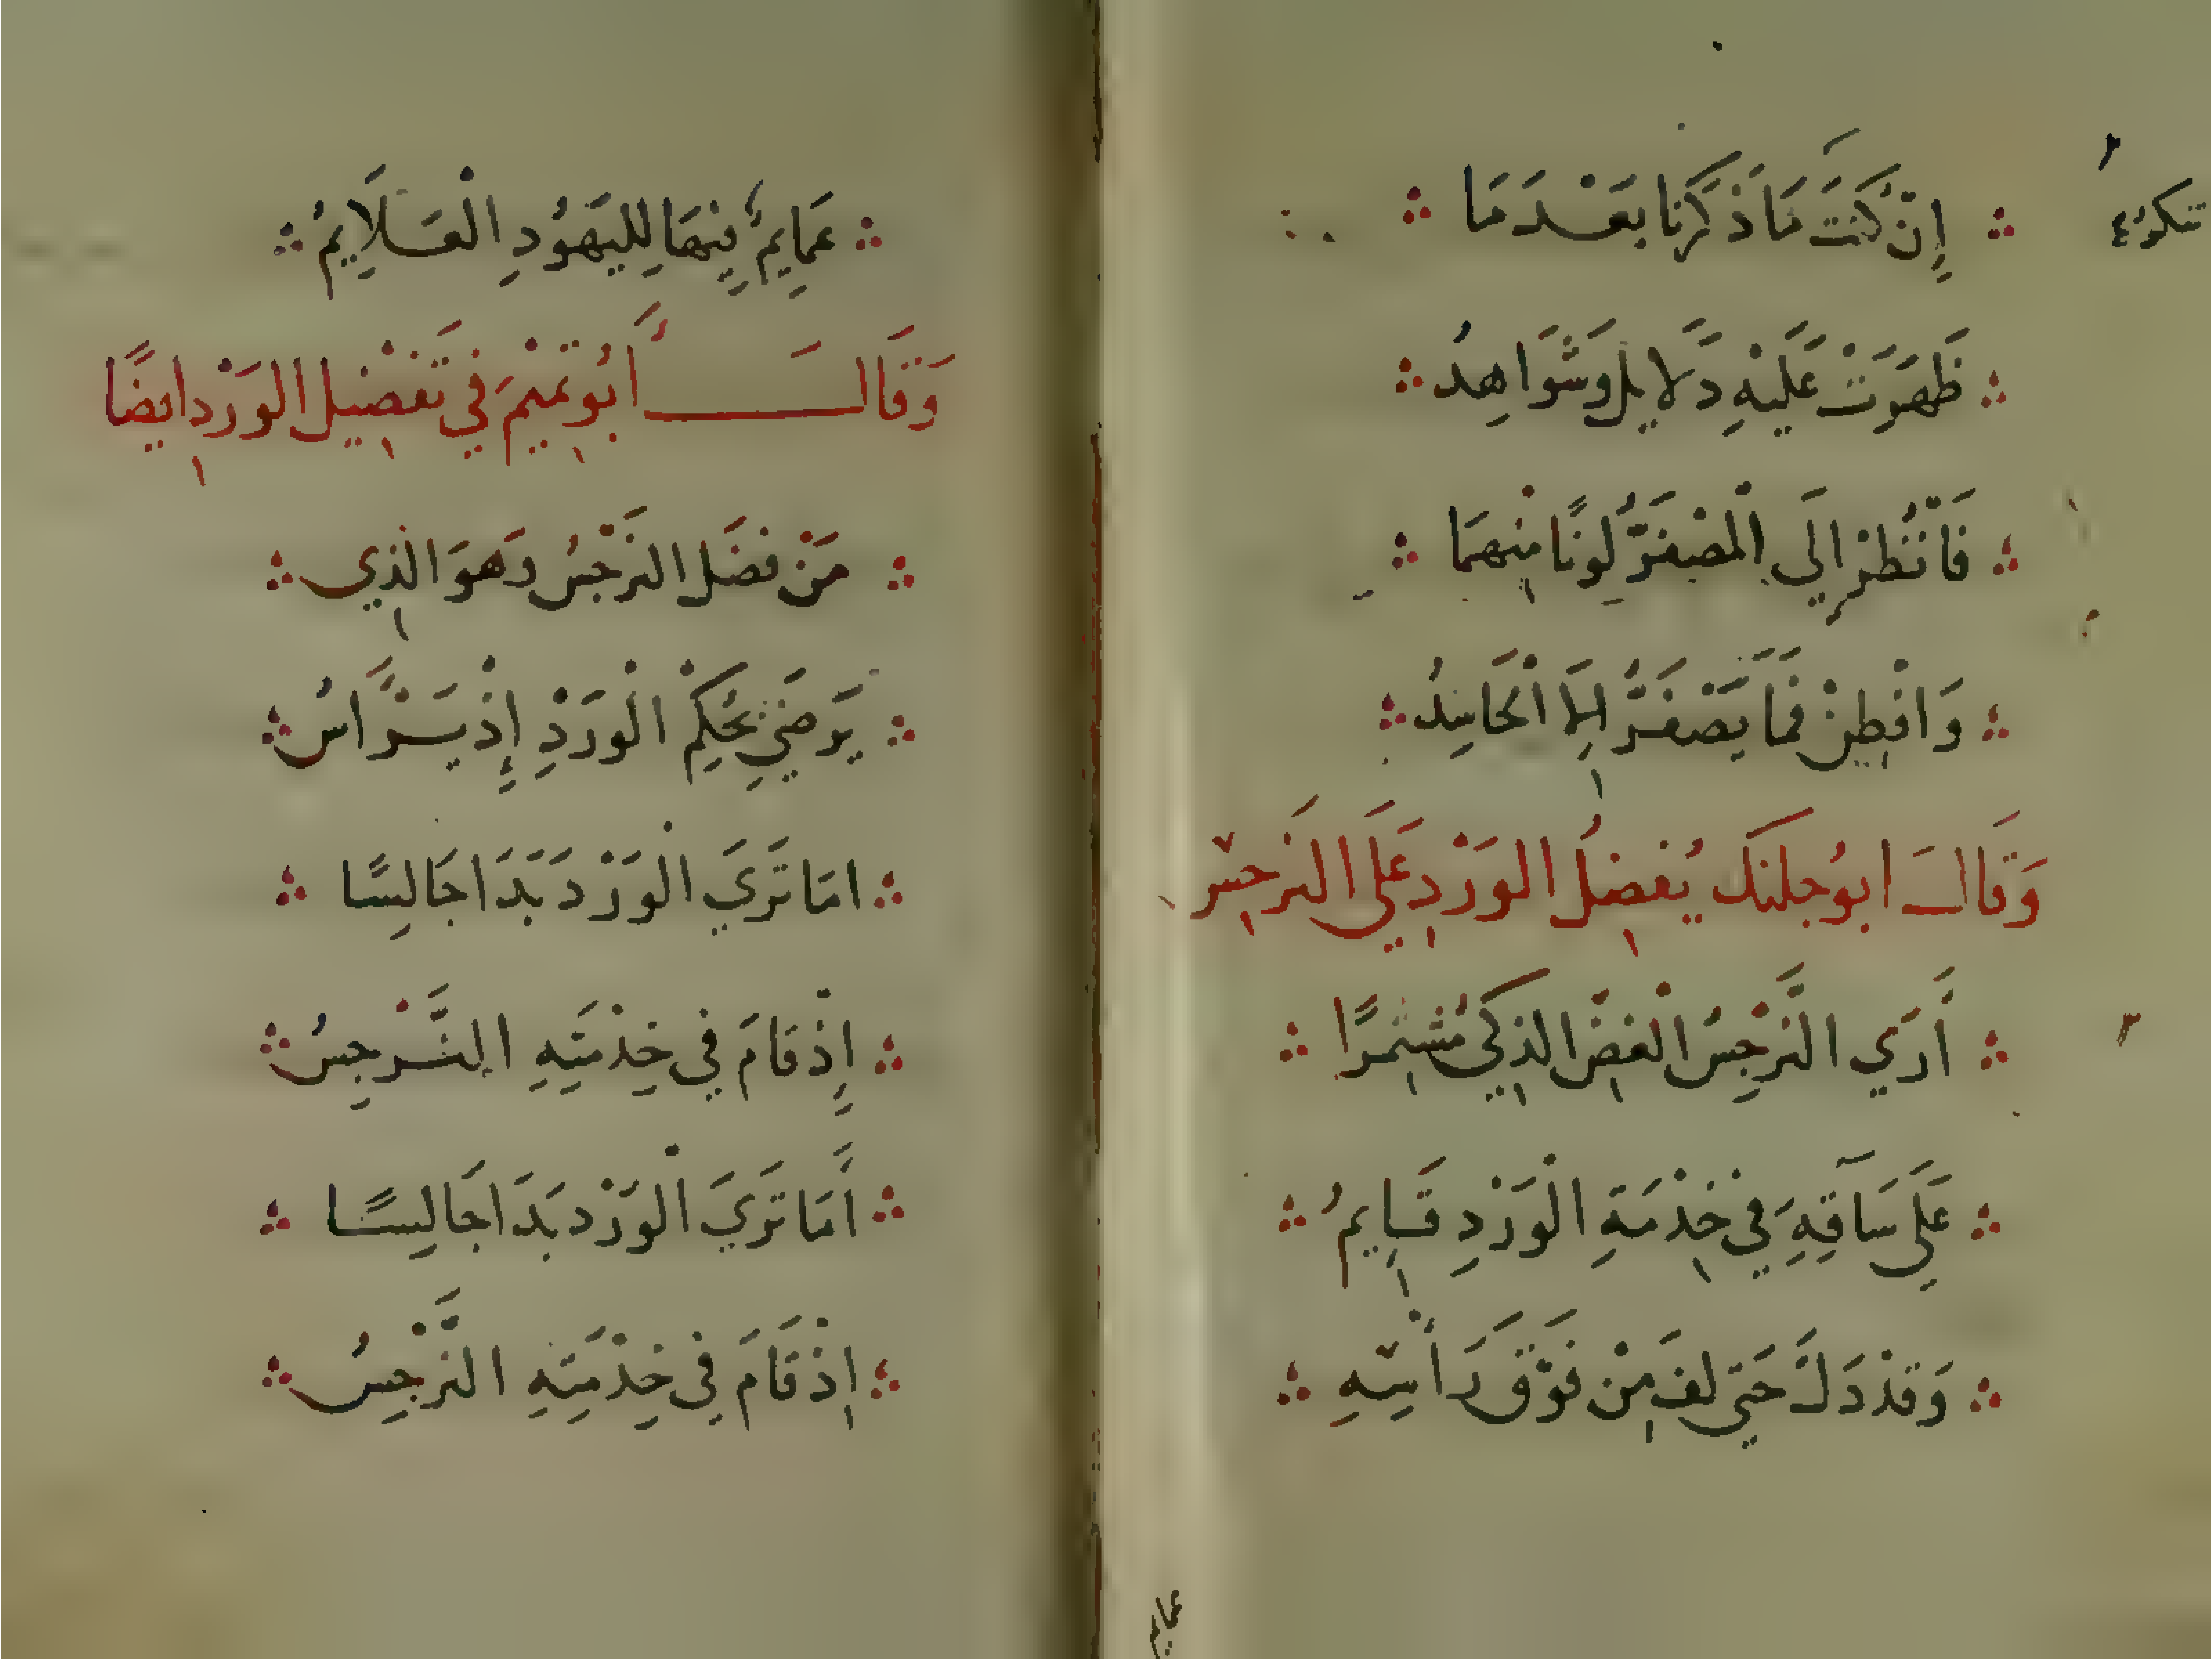 إِنْ كُنْتَ مَا ذَكَرْنَا بَعْدَ مَا
ظَهَرَتْ عَلَيْهِ دَلَايِل وَشَوَاهِدُ
فَانْظُرْ اِلَي الْمُصْفَرِّ لَوْنًا مِنْهُمَا
وَافْطِنْ فَمَا يَصْفَرُّ اِلَا الْحَاسِدُ
وَقَالَ ابو جلنك يُفَضِلُ الوَرْد عَلَى النَرجسْ
أَرَي النَّرْجِسُ الْغَضّ الذكي مُشَمِّرًا
عَلَى سَاقِهِ فِي خِدْمَةِ الْوَرْدِ قَايِمُ
وَقَدْ دَلَّ حَتي لف مِنْ فَوْقَ رَأسِهِ
عمايم
عَمَايِمُ فِيهَا لِلْيَهُودِ الْعَلَايِمُ
وَقَالَ أَبُو تَمِيمْ في تَفْضِيل الوَرْد ايضًا
مَنْ فضَل النَرْجْسُ وَهوَ الذي
يَرْضَى بِحُكِمْ الْوَرْدِ إِذْ يَرْاسُ
امَا تَرَيَ الْوَرْد بَدَا جَالِسًا
إِذْ قَامَ فِي خِدْمَتِهِ النَّرْجِسُ
أَمَا تَرَيَ الْوَرْد بَدَا جَالِسًا
اِذْ قَامَ فِي خِدْمَتِهِ النَّرْجِسُ